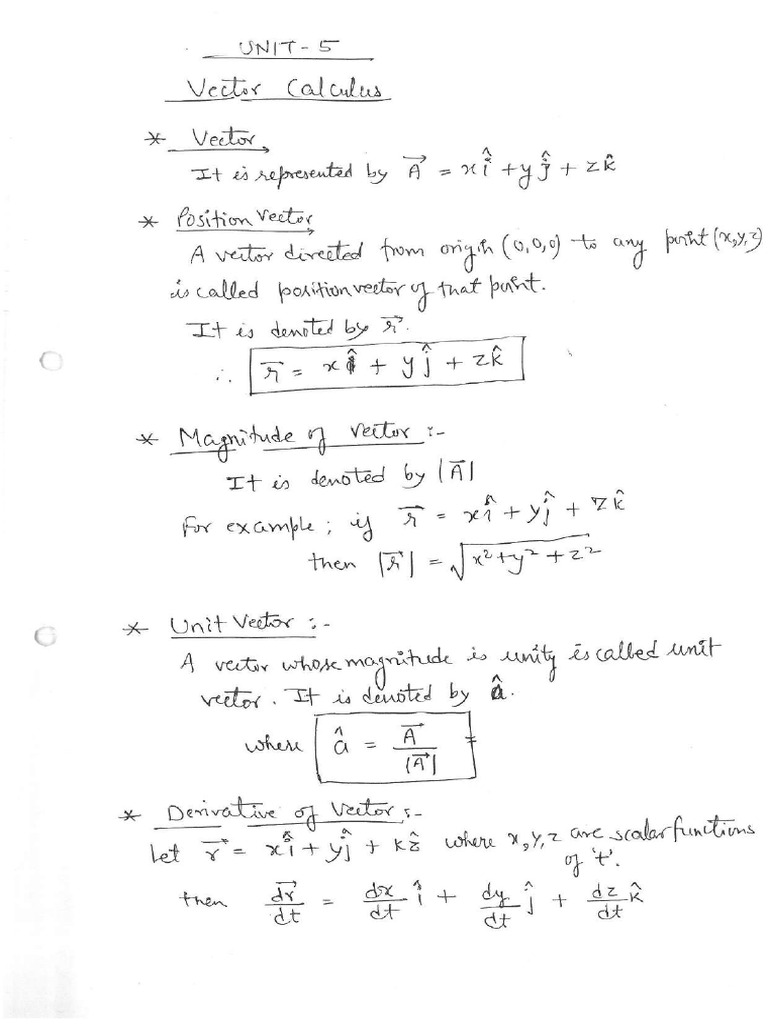 UNIT-5
Vector Calculus
* Vector
It is represented by A⃗ = xî + yĵ + zk̂
* Position Vector
A vector directed from origin (0,0,0) to any point (x,y,z)
is called position vector of that point.
It is denoted by r⃗.
∴ r⃗ = xî + yĵ + zk̂
* Magnitude of Vector :-
It is denoted by |A⃗|
For example; if r⃗ = xî + yĵ + zk̂
then |r⃗| = √(x²+y²+z²)
* Unit Vector :-
A vector whose magnitude is unity is called unit
vector. It is denoted by â.
where â = A⃗/|A⃗|
* Derivative of Vector :-
Let r⃗ = xî + yĵ + kẑ where x,y,z are scalar functions
of 't'.
then dr⃗/dt = dx/dt î + dy/dt ĵ + dz/dt k̂